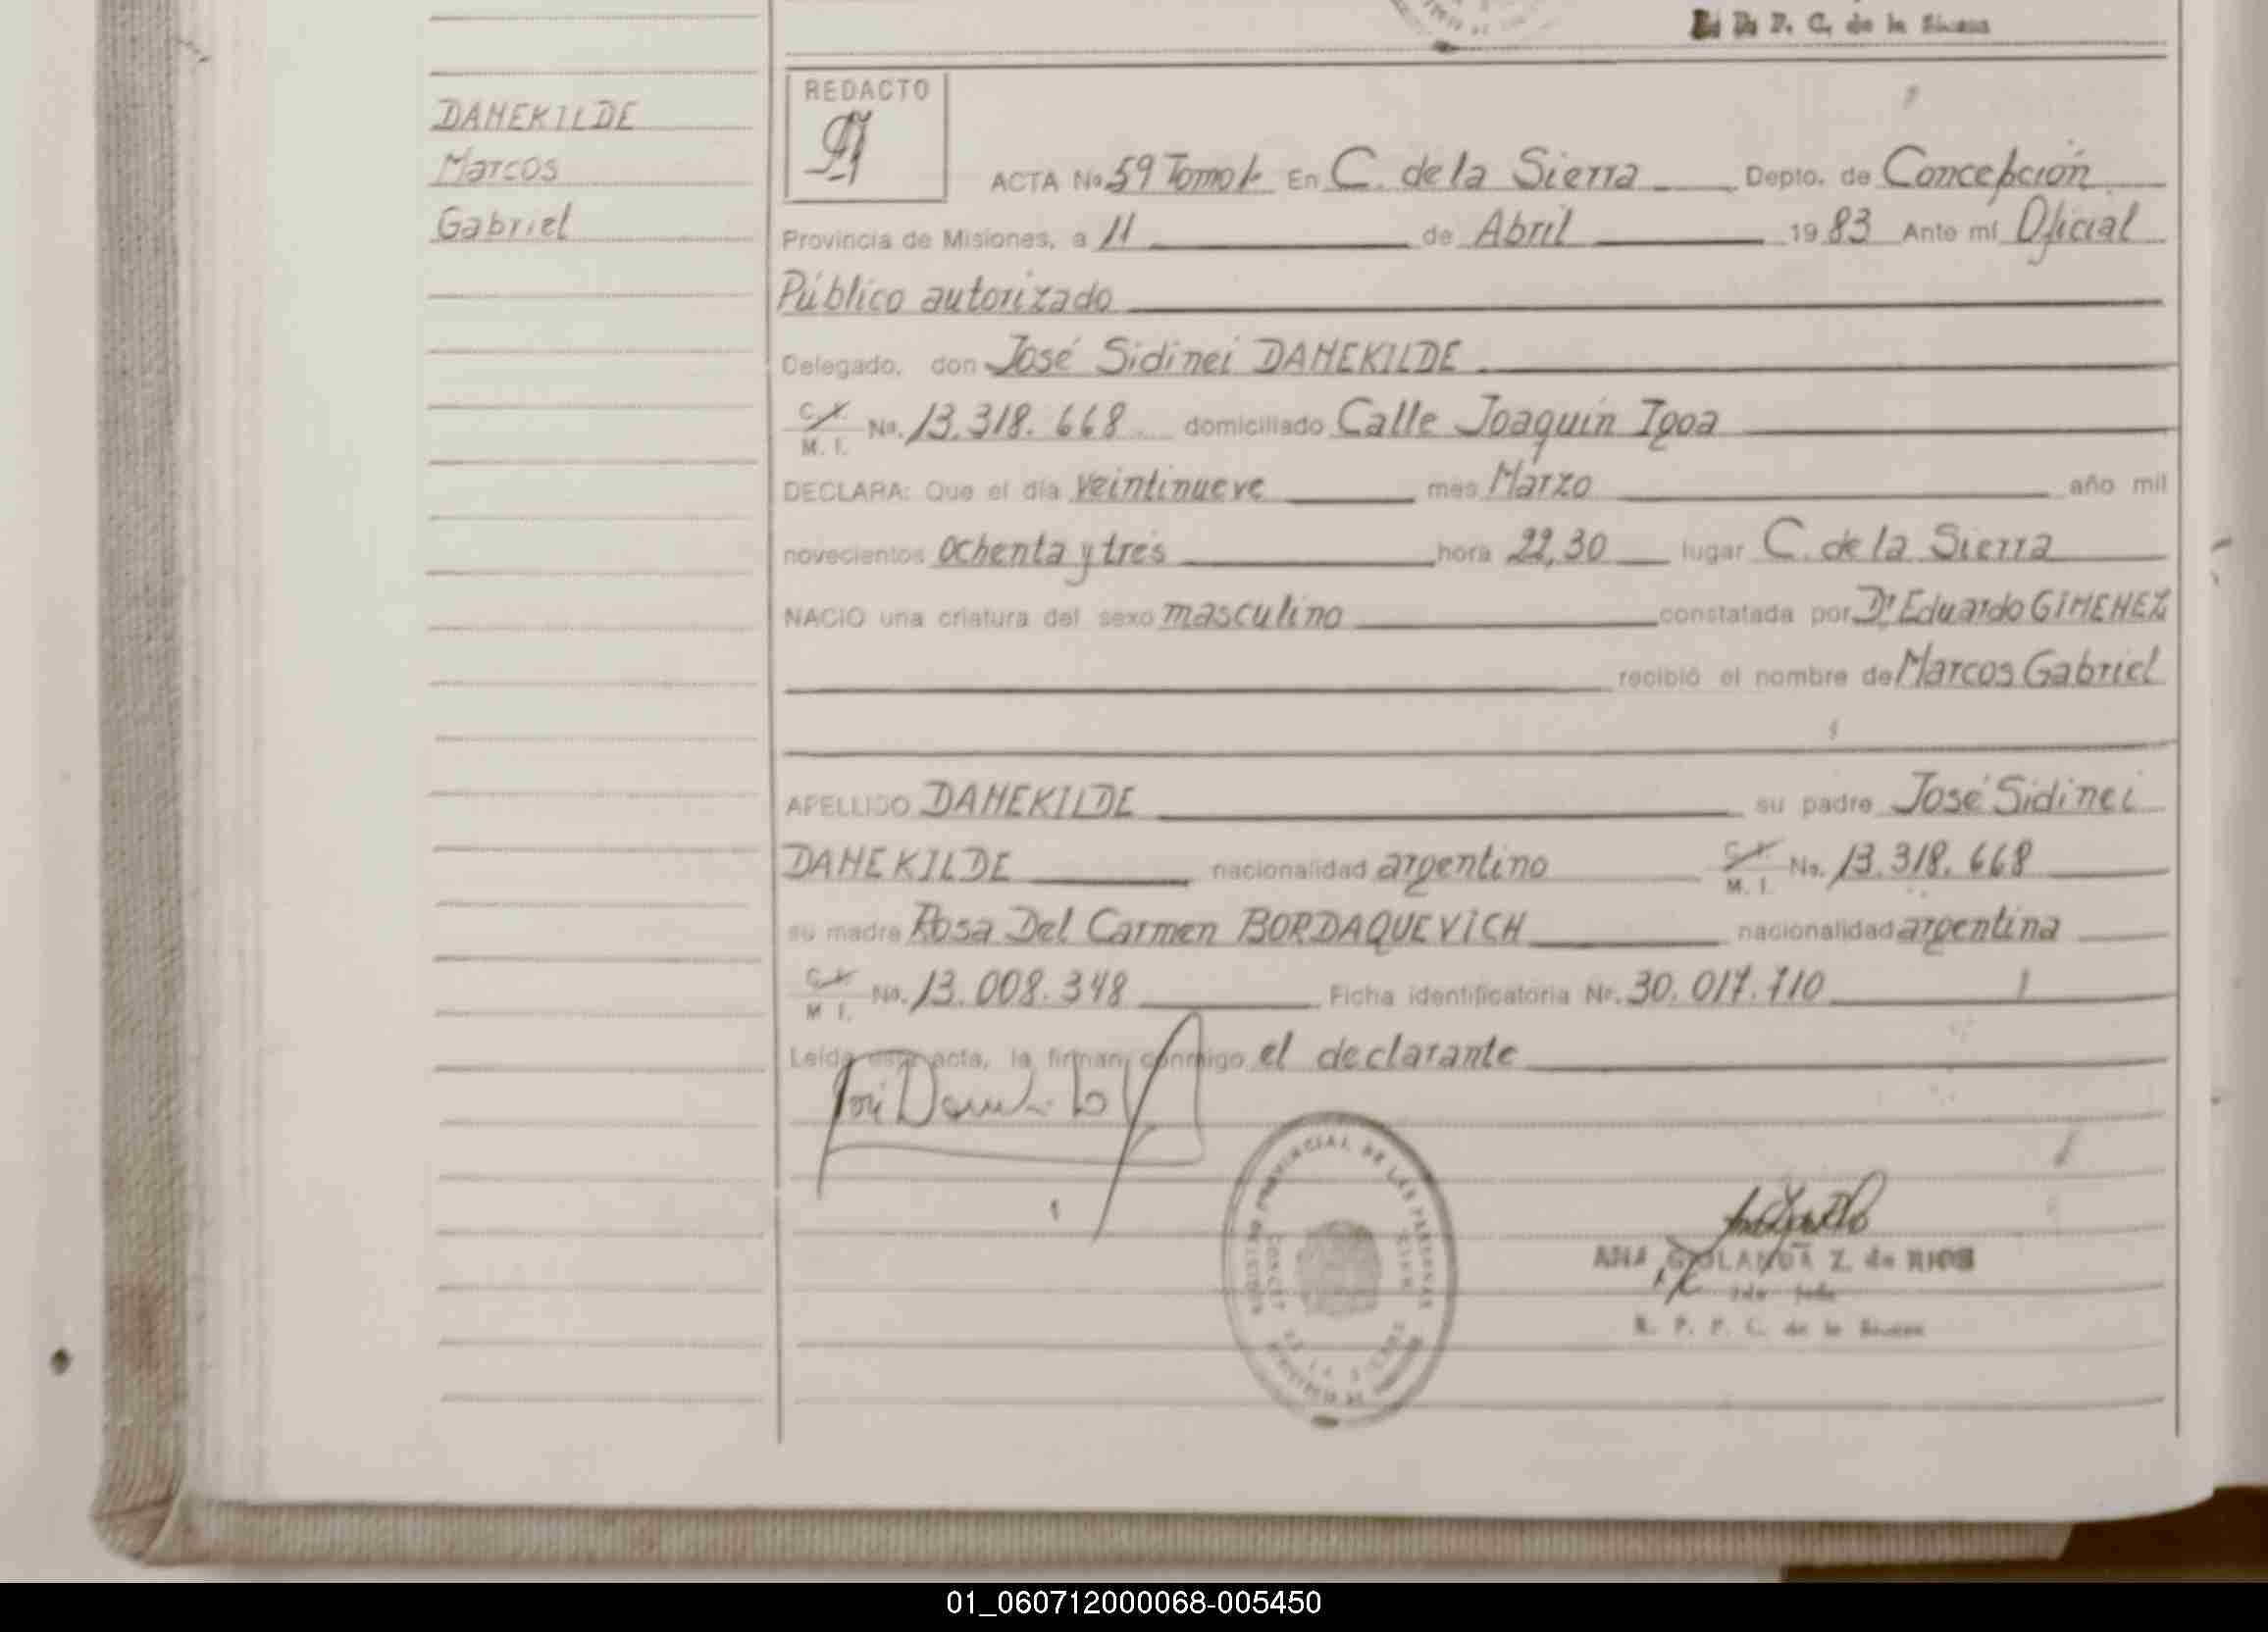 P. C. de la Sierra
DANEKILDE
Marcos
Gabriel
REDACTO
ACTA No 59 Tomo 1º En C. de la Sierra Depto. de Concepción
Provincia de Misiones, a 11 de Abril 1983 Ante mí Oficial
Público autorizado
Delegado, don José Sidinei DANEKILDE
C. I.
M. I. No. 13.318.668 domiciliado Calle Joaquín Igoa
DECLARA: Que el día veintinueve mes Marzo año mil
novecientos ochenta y tres hora 22,30 lugar C. de la Sierra
NACIO una criatura del sexo masculino constatada por Dr Eduardo GIMENEZ
recibió el nombre de Marcos Gabriel
APELLIDO DANEKILDE su padre José Sidinei
DANEKILDE nacionalidad argentino C. I.
M. I. No. 13.318.668
su madre Rosa Del Carmen BORDAQUEVICH nacionalidad argentina
C. I.
M. I. No. 13.008.348 Ficha identificatoria Nr. 30.017.710
Leída esta acta, la firman conmigo el declarante
PROVINCIAL DE LAS PERSONAS
DE LA SIERRA
ANA YOLANDA Z. de RIOS
R. P. P. C. de la Sierra
01_060712000068-005450